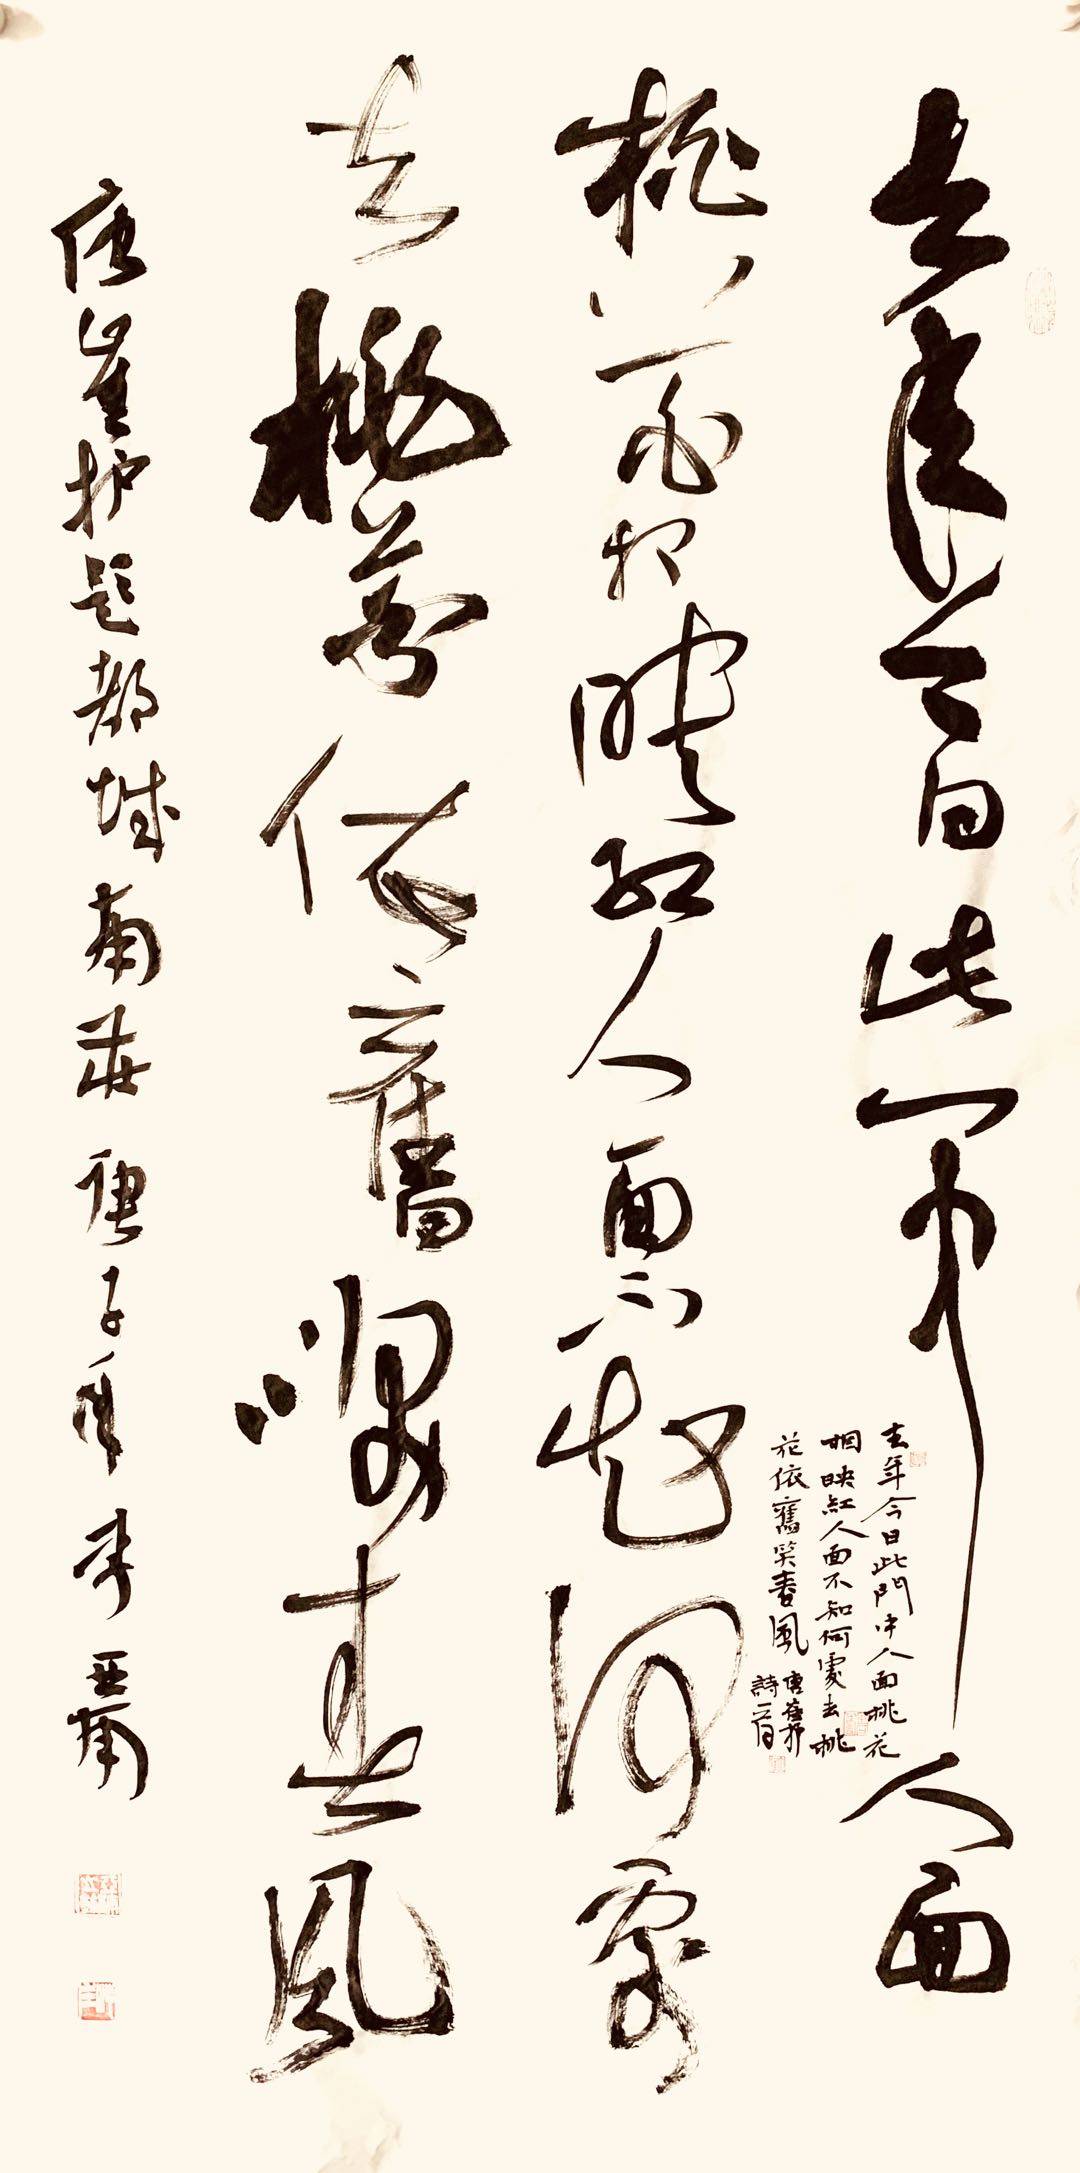 去年今日此門中人面
桃花相映紅人面不知何處
去桃花依舊春風
唐崔护題都城南莊 庚子年 李亚楠
去年今日此門中人面桃花
相映紅人面不知何處去桃
花依舊笑春風
唐崔护
詩一首